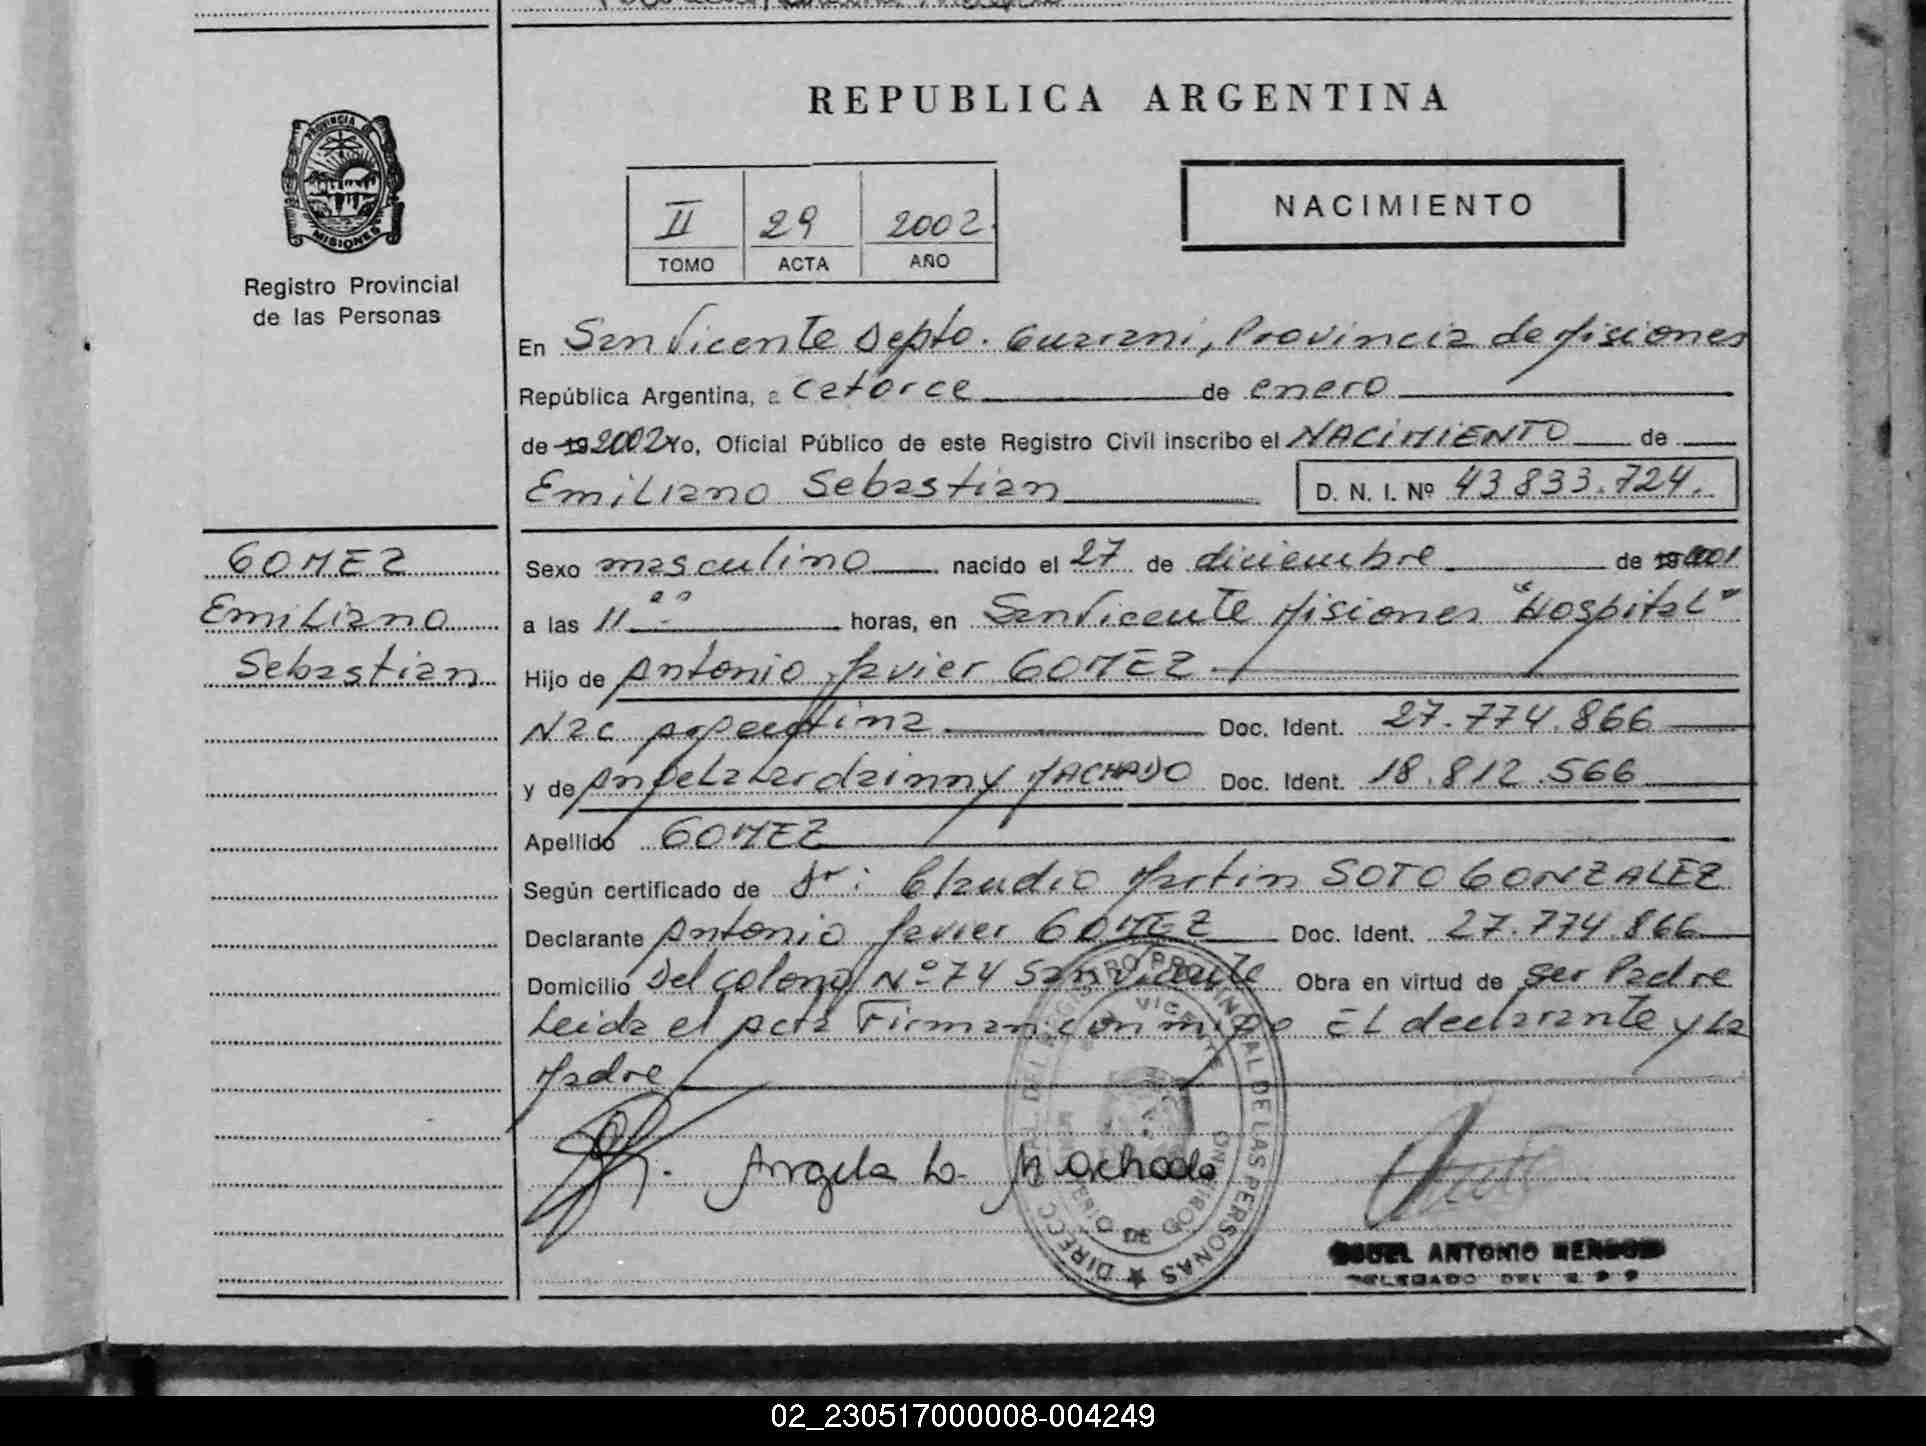 REPUBLICA ARGENTINA
PROVINCIA DE
MISIONES
Registro Provincial
de las Personas
II 29 2002
TOMO ACTA AÑO
NACIMIENTO
En San Vicente Depto. Guarani, Provincia de Misiones
República Argentina, a catorce de enero
de 19 2002 Yo, Oficial Público de este Registro Civil inscribo el NACIMIENTO de
Emiliano Sebastian D. N. I. Nº 43 833.724.
GOMEZ
Emiliano
Sebastian
Sexo masculino nacido el 27 de diciembre de 2001
a las 11 ºº horas, en San Vicente Misiones "Hospital"
Hijo de Antonio Javier GOMEZ
Nac Argentina Doc. Ident. 27.774.866
y de Angela Lardainny MACHADO Doc. Ident. 18.812.566
Apellido GOMEZ
Según certificado de Dr: Claudio Martin SOTO GONZALEZ
Declarante Antonio Javier GOMEZ Doc. Ident. 27.774.866
Domicilio Del colono Nº 74 San Vicente Obra en virtud de ser Padre
Leida el acta Firman con migo EL declarante y La
Madre
Angela L. Machado
DIRECC. DEL REGISTRO PROVINCIAL DE LAS PERSONAS
SAN VICENTE
DE GOBIERNO
ANTONIO
DELEGADO DEL R P P
02_230517000008-004249